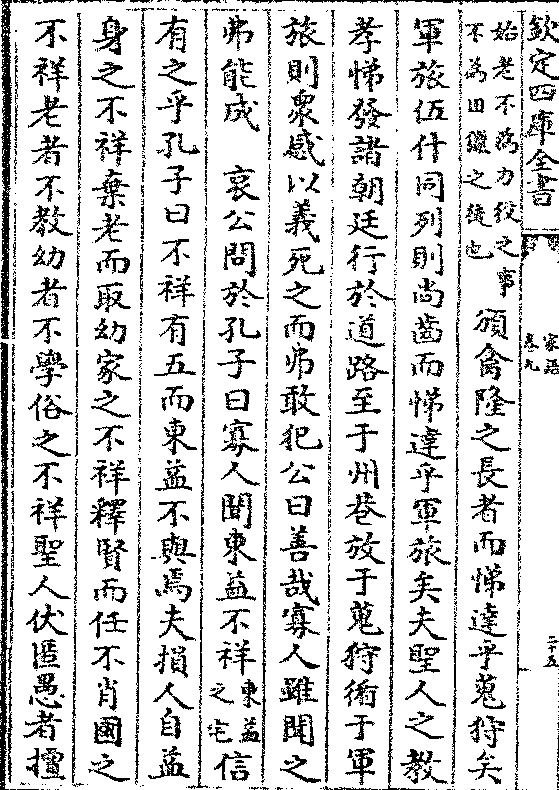 欽定四庫全書
家語
卷九
二十五
始老不為力役之事
不為田獵之徒也
頒禽隆之長者而悌達乎蒐狩矣
軍旅伍什同列則尚齒而悌達乎軍旅矣夫聖人之教
孝悌發諸朝廷行於道路至于州巷放于蒐狩循于軍
旅則衆感以義死之而弗敢犯公曰善哉寡人雖聞之
弗能成　哀公問於孔子曰寡人聞東益不祥東益之宅信
有之乎孔子曰不祥有五而東益不與焉夫損人自益
身之不祥棄老而取幼家之不祥釋賢而任不肖國之
不祥老者不教幼者不學俗之不祥聖人伏匿愚者擅